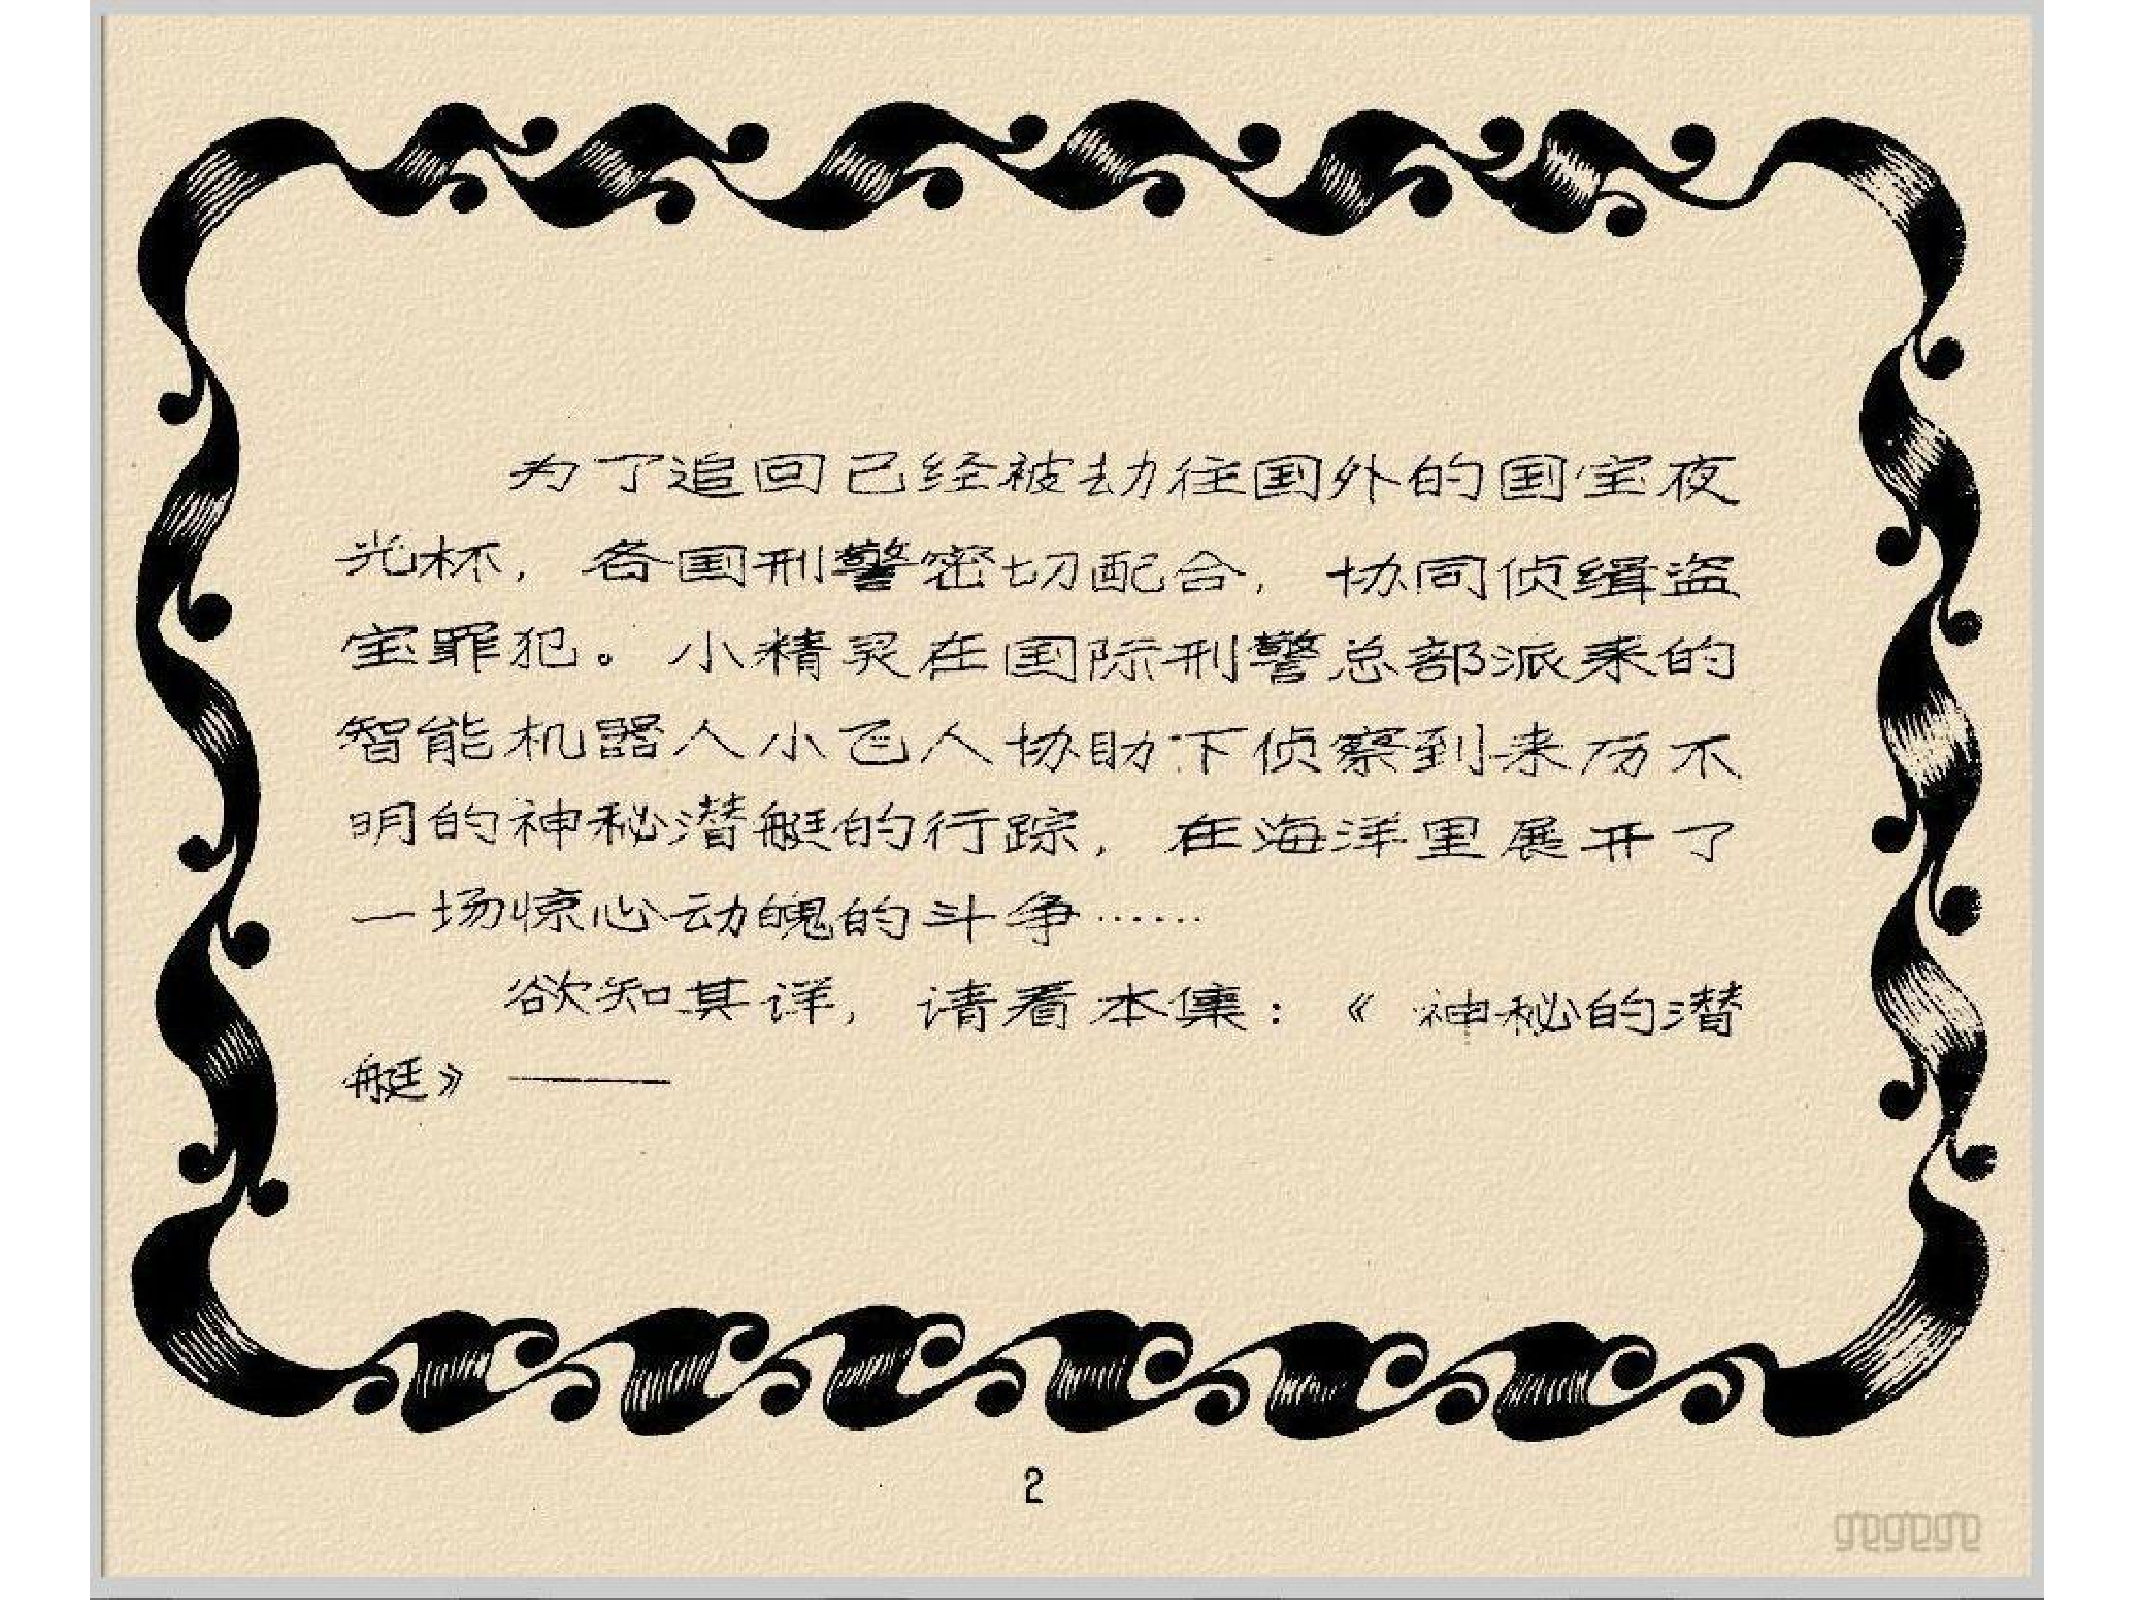 为了追回已经被劫往国外的国宝夜
光杯，各国刑警密切配合，协同侦缉盗
宝罪犯。小精灵在国际刑警总部派来的
智能机器人小飞人协助下侦察到来历不
明的神秘潜艇的行踪，在海洋里展开了
一场惊心动魄的斗争……
欲知其详，请看本集：《神秘的潜
艇》——
2
gegege